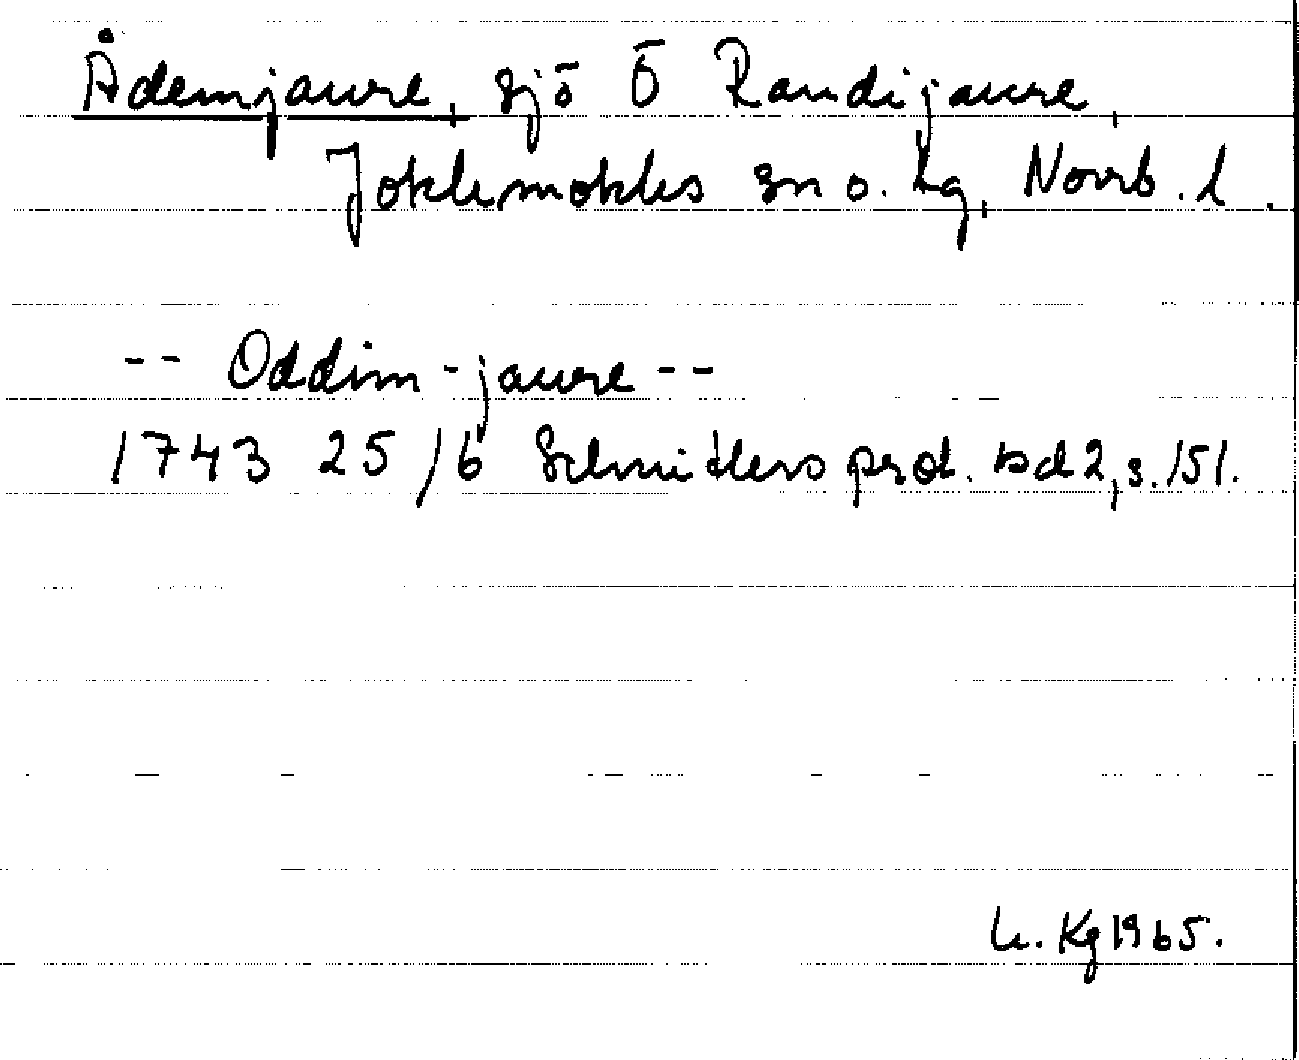 Ådemjaure, sjö Ö Randijaure,
Jokkmokks sn o. kg, Norrb. l.
-- Oddim-jaure --
1743 25/6 Schnitlers prot. bd 2, s. 151.
Kg 1965.